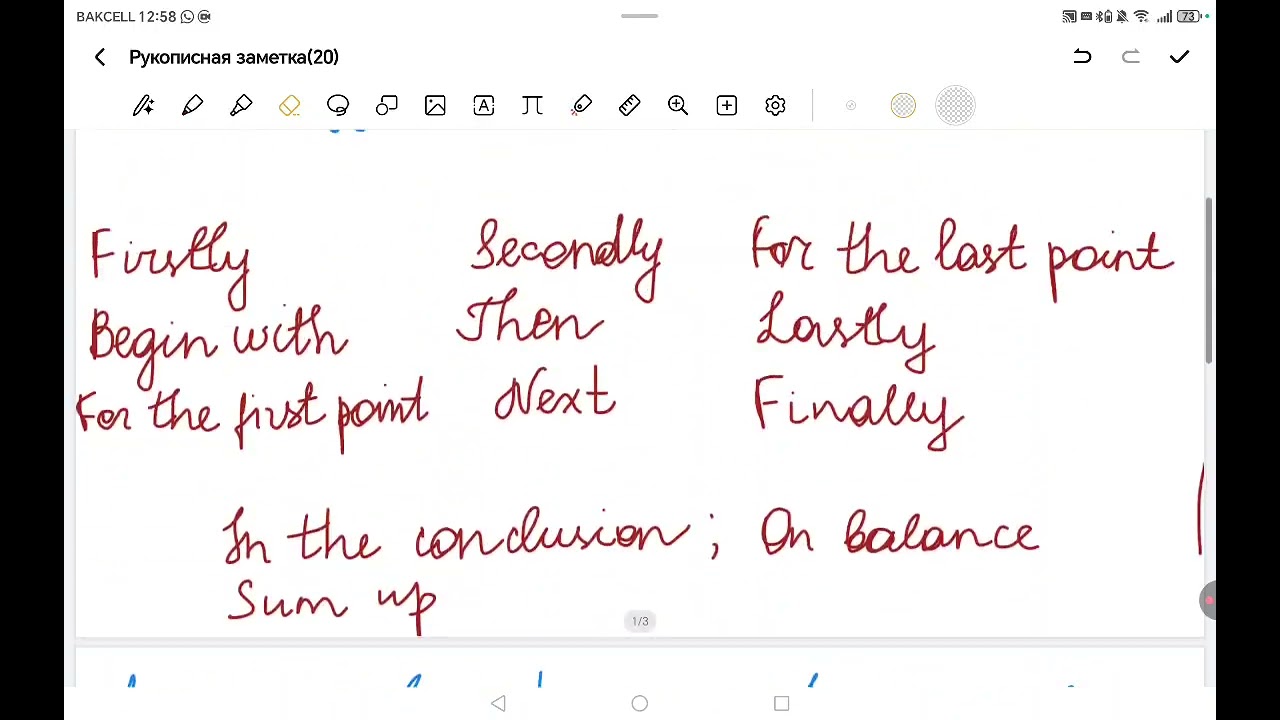 BAKCELL 12:58 73
Рукописная заметка(20)
Firstly Secondly For the last point
Begin with Then Lastly
For the first point Next Finally
In the conclusion ; On balance
Sum up
1/3